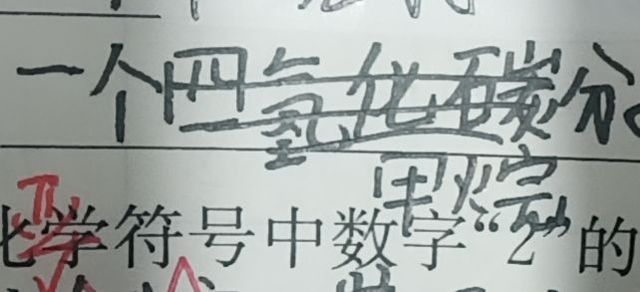 一个四氢化碳分
甲烷
化学符号中数字“2”的